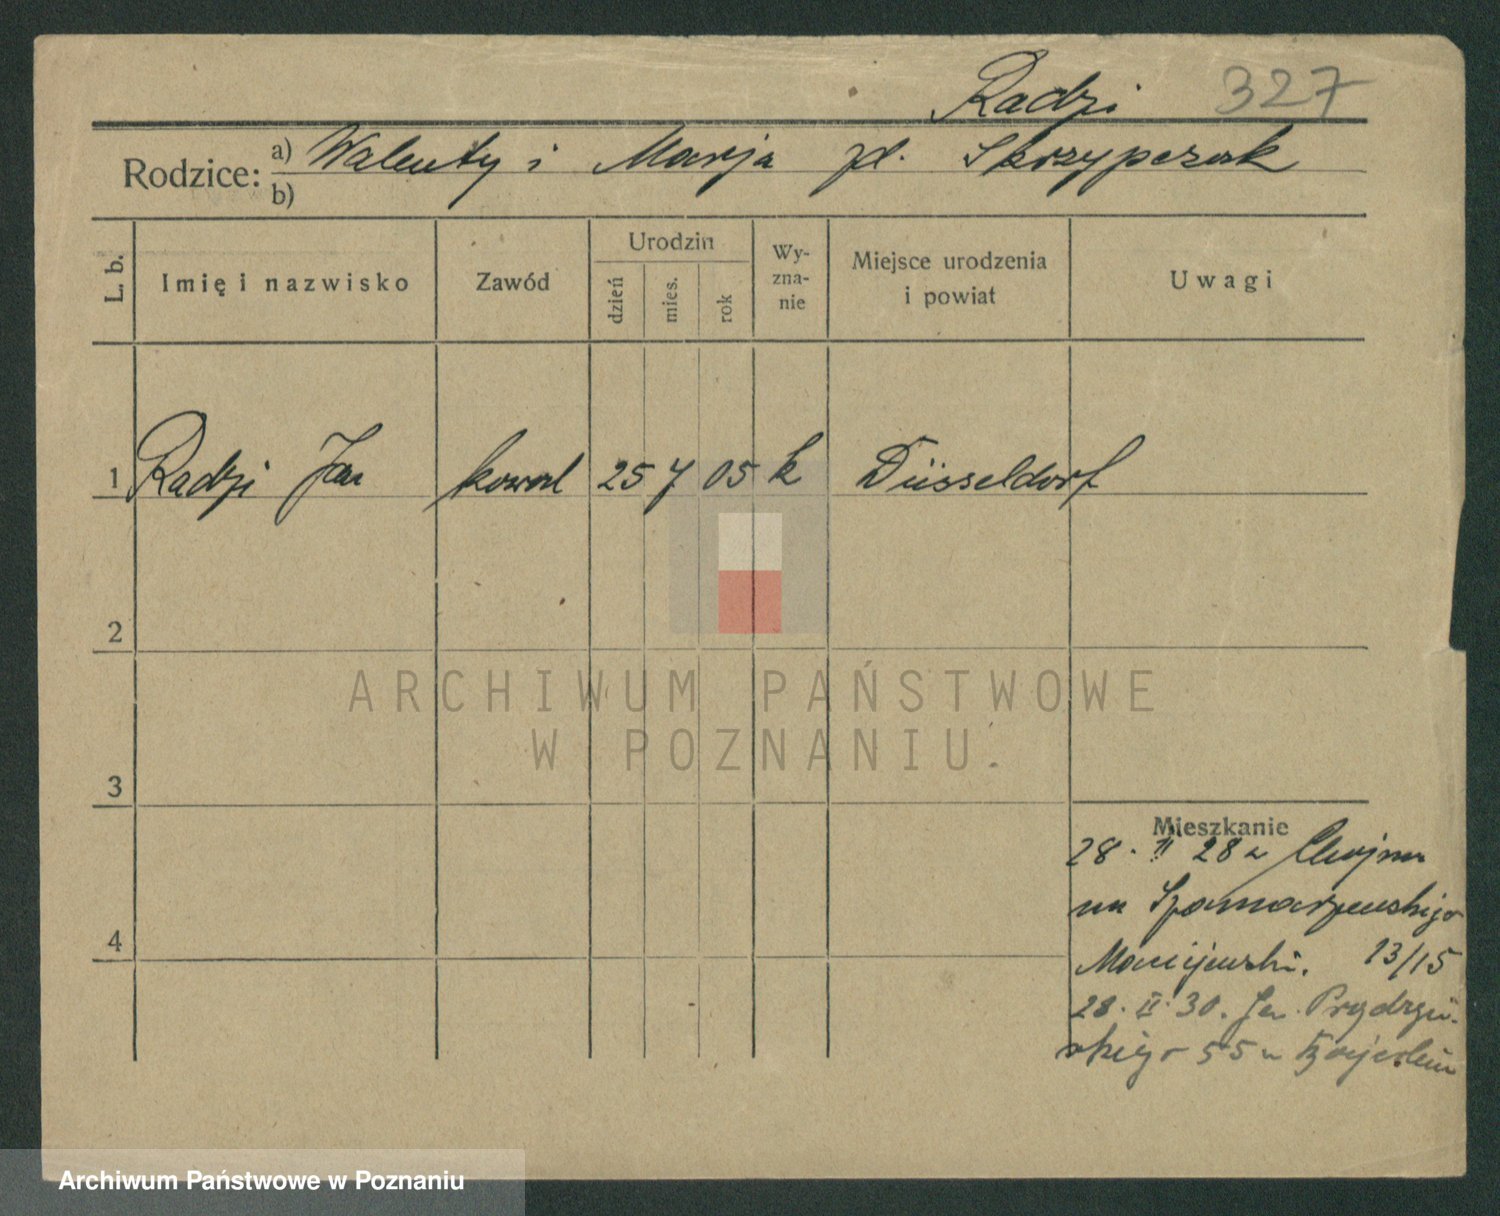 Radzi 327
Rodzice: a) Walenty i Marja zd. Skrzypczak
b)
L. b. Imię i nazwisko Zawód Urodzin dzień mies. rok Wy-zna-nie Miejsce urodzenia i powiat Uwagi
1 Radzi Jan kowal 25 7 05 k Düsseldorf
2
3
4
Mieszkanie
28. II 28 z Chojna
na Szamarzewskiego
Maciejewski. 13/15
28. II. 30. Jen. Prądzyń-
skiego 55 u
ARCHIWUM PAŃSTWOWE
W POZNANIU.
Archiwum Państwowe w Poznaniu